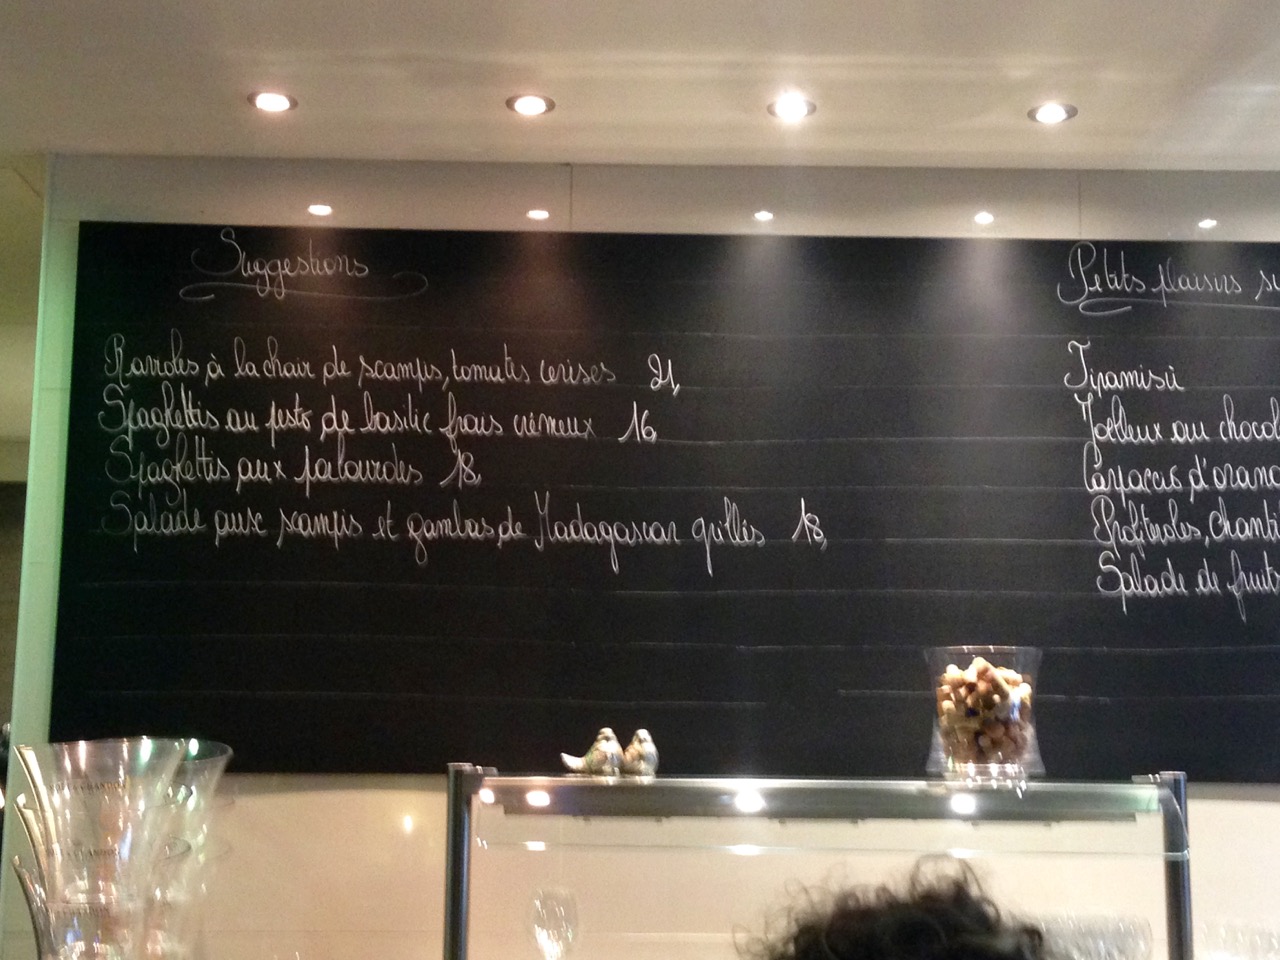 Suggestions
Ravioles à la chair de scampis, tomates cerises 21,
Spaghettis au pesto de basilic frais crémeux 16,
Spaghettis aux palourdes 18,
Salade aux scampis et gambas de Madagascar grillés 18,
Petits plaisirs su
Tiramisù
Moelleux au chocol
Carpaccio d'orang
Profiteroles, chanti
Salade de fruits